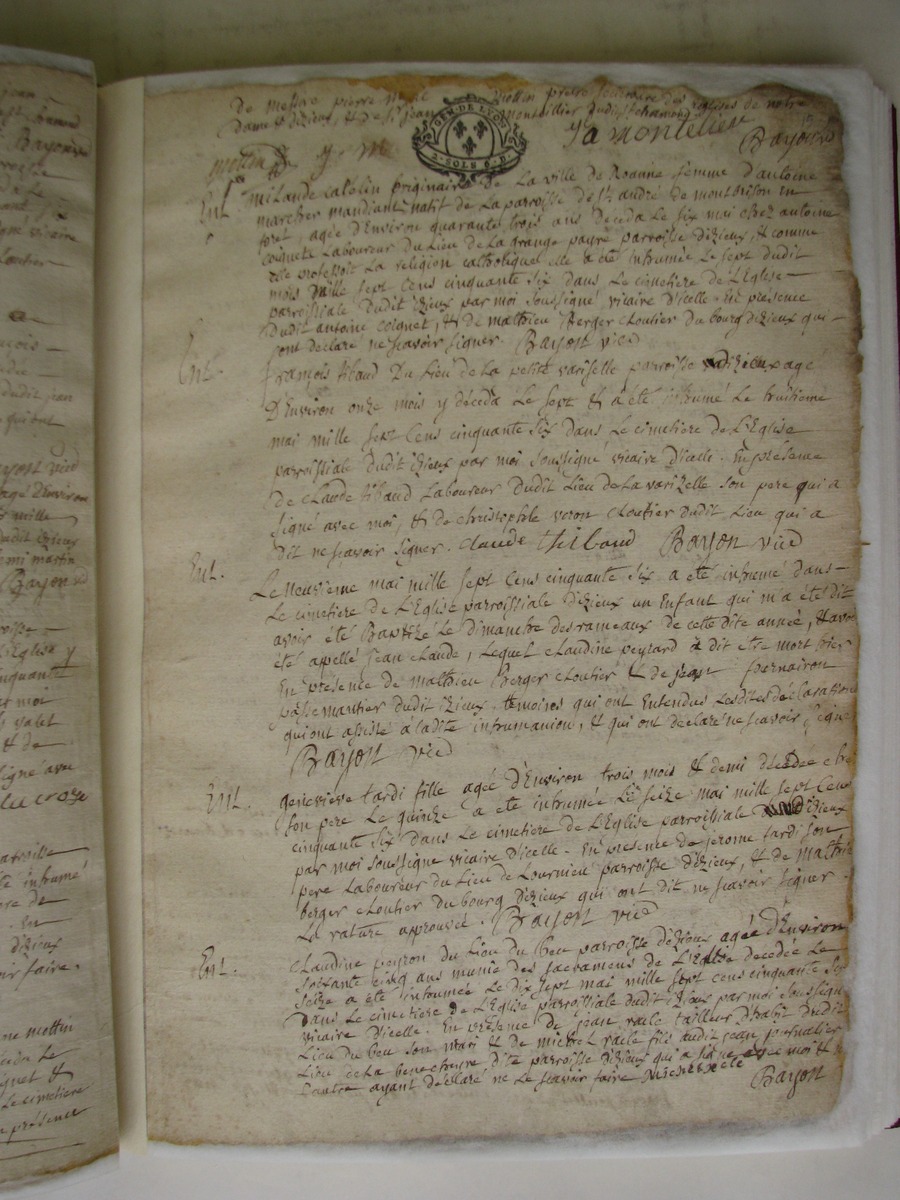 De messire pierre mottin prestre societaire des eglises de notre
Dame Dizieux, & de st jean montdillier dudit st chamond
GEN. DE LYON
2 SOLS 6 D.
ja montelier
Bayon vic
mottin
Ent.
Claude catelin originaire de La ville de Roanne femme d'antoine
marcher mandiant natif de La parroisse de st andré de montbrison en
foret, agée d'Environ quarante trois ans Deceda Le six mai chez antoine
coignet Laboureur du Lieu de La grange payre parroisse dizieux, & comme
elle professoit La religion catholique elle a été inhumée Le sept dudit
mois mille sept cens cinquante six dans Le cimetiere de L'Eglise
parroissiale dudit izieux par moi soussigné vicaire D'icelle. En présence
dudit antoine coignet, & de mathieu Berger cloutier du bourg dizieux qui
ont declaré ne scavoir signer. Bayon vic
Ent.
françois thibaud Du Lieu de La petite variselle parroisse dizieux agé
D'Environ onze mois y déceda Le sept & a été inhumé Le huitieme
mai mille sept cens cinquante six dans Le cimetiere de L'Eglise
parroissiale dudit izieux par moi soussigné vicaire d'icelle. En présence
de claude thibaud Laboureur dudit Lieu de La varizelle son pere qui a
signé avec moi, & de christophle veron cloutier dudit Lieu qui a
dit ne scavoir signer. claude thibaud Bayon vic
Ent.
Le neuvieme mai mille sept cens cinquante six a été inhumé dans
Le cimetiere de L'Eglise parroissiale dizieux un Enfant qui m'a été dit
avoir été Baptizé Le dimanche des rameaux de cette dite année, & avoir
été appellé jean claude, Lequel claudine peyrard a dit etre mort hier
En présence de mathieu Berger cloutier & de jean fournairon
passemantier dudit izieux. temoins qui ont Entendus Lesdites déclarations
qui ont assisté à Ladite inhumation, & qui ont declaré ne scavoir signer
Bayon vic
Ent.
genevieve tardi fille agée d'Environ trois mois & demi décédée chez
son pere Le quinze a été inhumée Le seize mai mille sept cens
cinquante six dans Le cimetiere de L'Eglise parroissiale dizieux
par moi soussigné vicaire D'icelle. En présence de jerome tardi son
pere Laboureur du Lieu de Lournieu parroisse dizieux, & de mathieu
berger cloutier du bourg dizieux qui ont dit ne scavoir signer.
La rature approuvée. Bayon vic
Ent.
claudine peyron du Lieu du beu parroisse dizieux agée d'Environ
soixante cinq ans munie des sacramens de L'Eglise decedée Le
seize a été inhumée Le dix sept mai mille sept cens cinquante six
dans Le cimetiere de L'Eglise parroissiale dudit izieux par moi soussigné
vicaire D'icelle. En présence de jean vaile tailleur D'habit dudit
Lieu du beu son mari & de michel vaile fils dudit jean
Lieu de La dite parroisse dizieux qui a signé avec moi &
L'autre ayant declaré ne Le scavoir faire Bayon